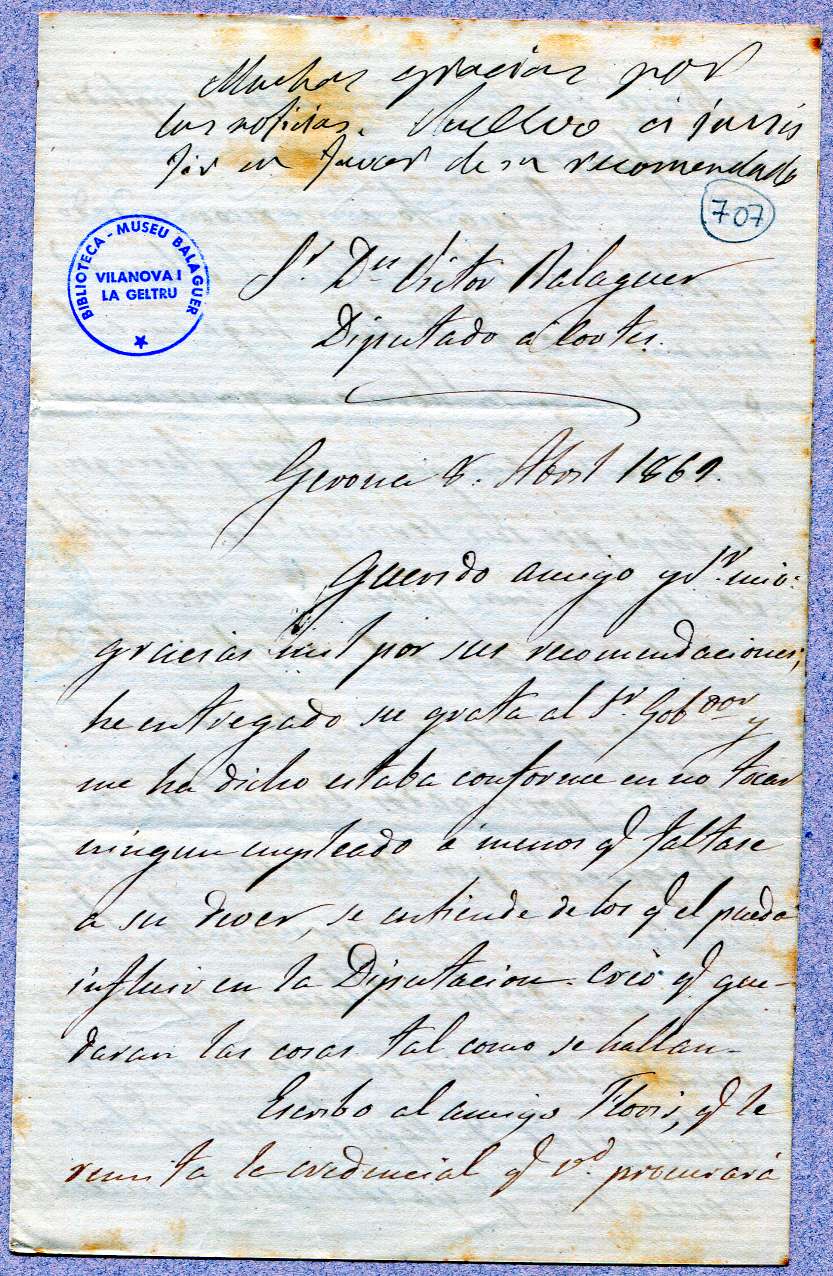 Muchas gracias por
las noticias. Vuelvo a insis
tir en favor de su recomendado
707
BIBLIOTECA - MUSEU BALAGUER
VILANOVA I
LA GELTRU
Sr. Dn Victor Balaguer
Diputado a Cortes.
Gerona 8. Abril 1869.
Querido amigo y Sr. mio:
gracias mil por sus recomendaciones;
he entregado su grata al Sr. Gobdor y
me ha dicho estaba conforme en no tocar
ningun empleado á menos q. faltase
a su dever, se entiende de los q. el pueda
influir en la Diputacion. Creo q. que-
daran las cosas tal como se hallan.
Escribo al amigo q. le
remita la credencial q. Vd. procurará